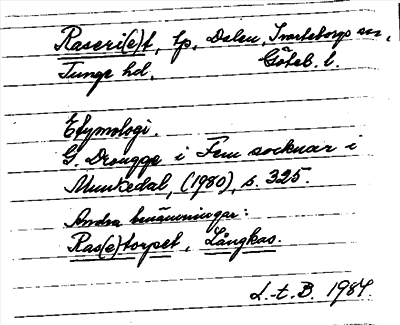 Raseri(e)t, lp. Dalen, Svarteborgs sn,
Tunge hd. Göteb. l.
Etymologi.
G. Drougge i Fem socknar i
Munkedal, (1980), s. 325.
Andra benämningar:
Ras(e)torpet, Långkas.
L.-t. B. 1984.